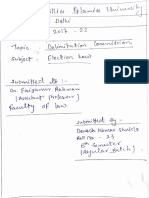 Islamia University
Delhi
2017 - 22
Topic - Delimitation Commission
Subject - Election Law
Submitted to :-
Dr. Faizanur Rahman
(Assistant Professor)
Faculty of law
Submitted By -
Devesh Kumar Shukla
Roll No - 23
6th Semester
(Regular Batch)